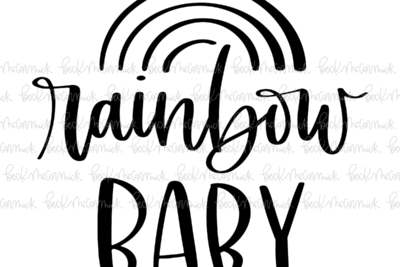 rainbow
BABY